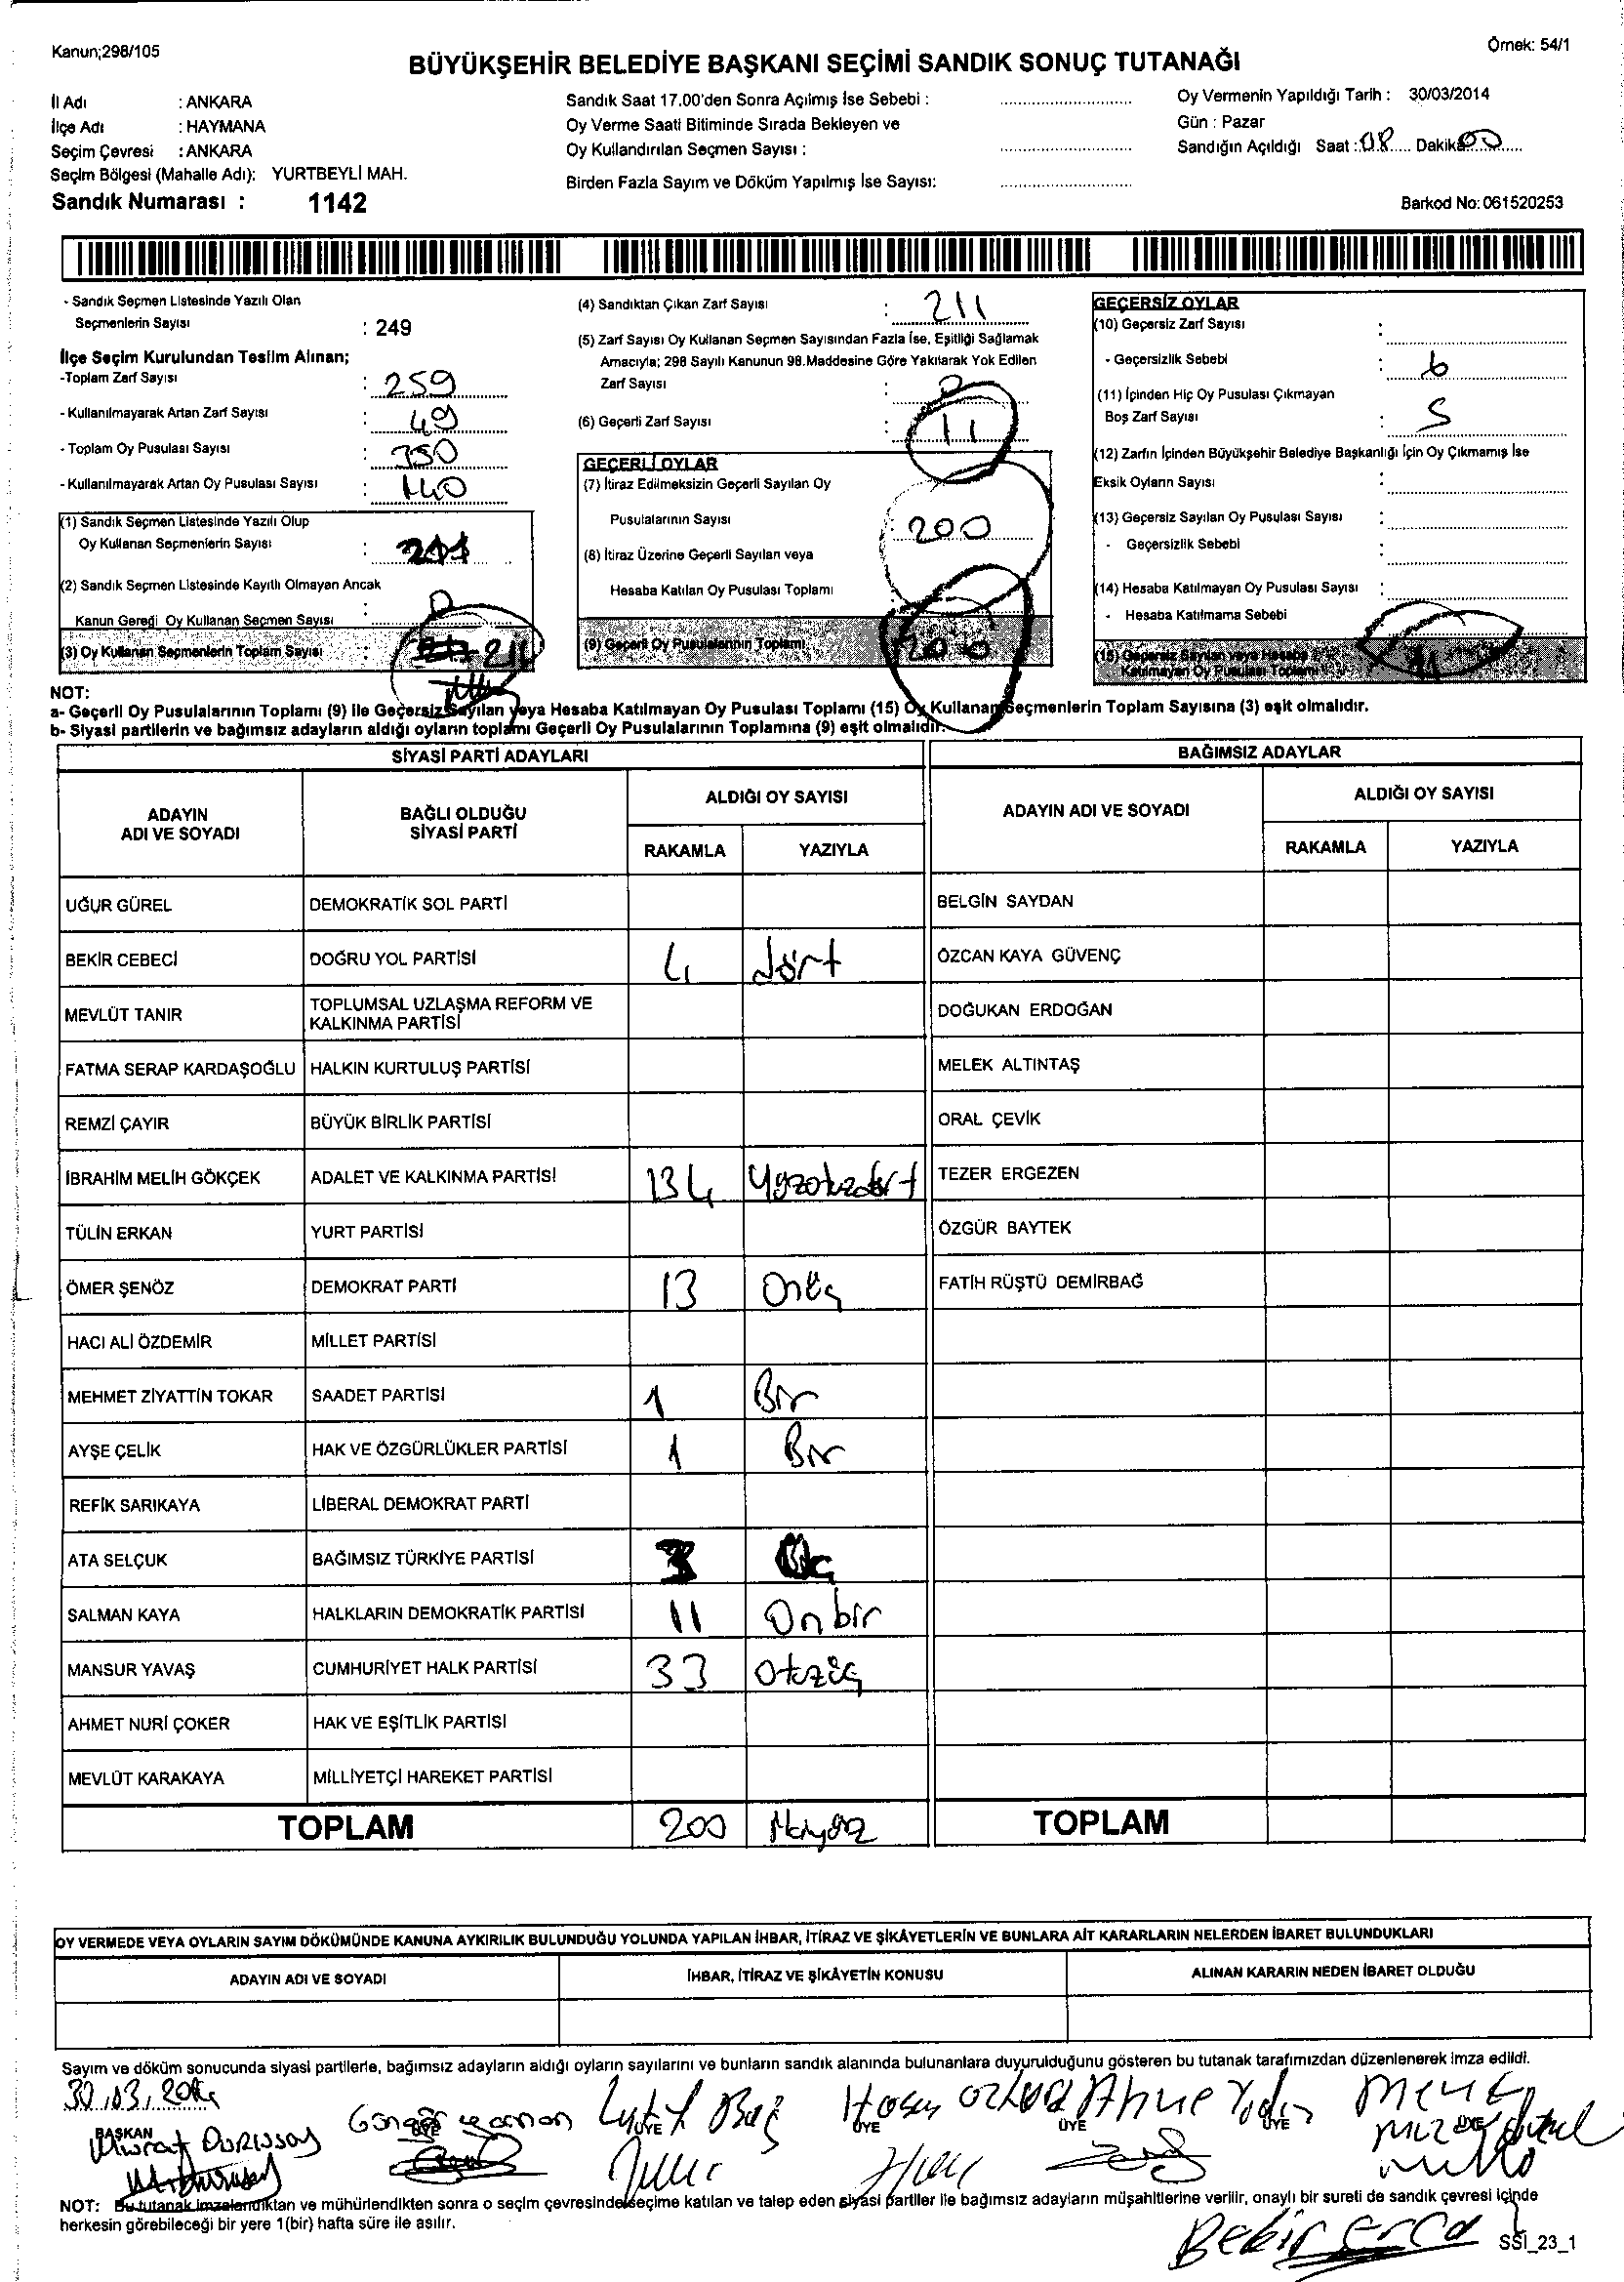 Kanun;298/105
Örnek: 54/1
BÜYÜKŞEHİR BELEDİYE BAŞKANI SEÇİMİ SANDIK SONUÇ TUTANAĞI
İl Adı : ANKARA
İlçe Adı : HAYMANA
Seçim Çevresi : ANKARA
Seçim Bölgesi (Mahalle Adı): YURTBEYLİ MAH.
Sandık Numarası : 1142
Sandık Saat 17.00'den Sonra Açılmış İse Sebebi :
Oy Verme Saati Bitiminde Sırada Bekleyen ve
Oy Kullandırılan Seçmen Sayısı :
Birden Fazla Sayım ve Döküm Yapılmış İse Sayısı:
Oy Vermenin Yapıldığı Tarih : 30/03/2014
Gün : Pazar
Sandığın Açıldığı Saat : 08 Dakika 00
Barkod No: 061520253
- Sandık Seçmen Listesinde Yazılı Olan
Seçmenlerin Sayısı : 249
İlçe Seçim Kurulundan Teslim Alınan;
-Toplam Zarf Sayısı : 259
- Kullanılmayarak Artan Zarf Sayısı : 49
- Toplam Oy Pusulası Sayısı : 350
- Kullanılmayarak Artan Oy Pusulası Sayısı : 140
(1) Sandık Seçmen Listesinde Yazılı Olup
Oy Kullanan Seçmenlerin Sayısı : 211
(2) Sandık Seçmen Listesinde Kayıtlı Olmayan Ancak
Kanun Gereği Oy Kullanan Seçmen Sayısı :
(3) Oy Kullanan Seçmenlerin Toplam Sayısı : 211
(4) Sandıktan Çıkan Zarf Sayısı : 211
(5) Zarf Sayısı Oy Kullanan Seçmen Sayısından Fazla İse, Eşitliği Sağlamak
Amacıyla; 298 Sayılı Kanunun 98.Maddesine Göre Yakılarak Yok Edilen
Zarf Sayısı :
(6) Geçerli Zarf Sayısı : 11
GEÇERLİ OYLAR
(7) İtiraz Edilmeksizin Geçerli Sayılan Oy
Pusulalarının Sayısı : 200
(8) İtiraz Üzerine Geçerli Sayılan veya
Hesaba Katılan Oy Pusulası Toplamı
(9) Geçerli Oy Pusulalarının Toplamı 200
GEÇERSİZ OYLAR
(10) Geçersiz Zarf Sayısı :
- Geçersizlik Sebebi : 6
(11) İçinden Hiç Oy Pusulası Çıkmayan
Boş Zarf Sayısı : 5
(12) Zarfın İçinden Büyükşehir Belediye Başkanlığı İçin Oy Çıkmamış İse
Eksik Oyların Sayısı :
(13) Geçersiz Sayılan Oy Pusulası Sayısı :
- Geçersizlik Sebebi :
(14) Hesaba Katılmayan Oy Pusulası Sayısı :
- Hesaba Katılmama Sebebi :
(15) Geçersiz Sayılan veya Hesaba
Katılmayan Oy Pusulası Toplamı 11
NOT:
a- Geçerli Oy Pusulalarının Toplamı (9) ile Geçersiz Sayılan veya Hesaba Katılmayan Oy Pusulası Toplamı (15) Oy Kullanan Seçmenlerin Toplam Sayısına (3) eşit olmalıdır.
b- Siyasi partilerin ve bağımsız adayların aldığı oyların toplamı Geçerli Oy Pusulalarının Toplamına (9) eşit olmalıdır.
SİYASİ PARTİ ADAYLARI
ADAYIN ADI VE SOYADI BAĞLI OLDUĞU SİYASİ PARTİ ALDIĞI OY SAYISI
RAKAMLA YAZIYLA
UĞUR GÜREL DEMOKRATİK SOL PARTİ
BEKİR CEBECİ DOĞRU YOL PARTİSİ 4 dört
MEVLÜT TANIR TOPLUMSAL UZLAŞMA REFORM VE
KALKINMA PARTİSİ
FATMA SERAP KARDAŞOĞLU HALKIN KURTULUŞ PARTİSİ
REMZİ ÇAYIR BÜYÜK BİRLİK PARTİSİ
İBRAHİM MELİH GÖKÇEK ADALET VE KALKINMA PARTİSİ 134 Yüzotuzdört
TÜLİN ERKAN YURT PARTİSİ
ÖMER ŞENÖZ DEMOKRAT PARTİ 13 Onüç
HACI ALİ ÖZDEMİR MİLLET PARTİSİ
MEHMET ZİYATTİN TOKAR SAADET PARTİSİ 1 Bir
AYŞE ÇELİK HAK VE ÖZGÜRLÜKLER PARTİSİ 1 Bir
REFİK SARIKAYA LİBERAL DEMOKRAT PARTİ
ATA SELÇUK BAĞIMSIZ TÜRKİYE PARTİSİ 3 Üç
SALMAN KAYA HALKLARIN DEMOKRATİK PARTİSİ 11 Onbir
MANSUR YAVAŞ CUMHURİYET HALK PARTİSİ 33 Otuzüç
AHMET NURİ ÇOKER HAK VE EŞİTLİK PARTİSİ
MEVLÜT KARAKAYA MİLLİYETÇİ HAREKET PARTİSİ
TOPLAM 200
BAĞIMSIZ ADAYLAR
ADAYIN ADI VE SOYADI ALDIĞI OY SAYISI
RAKAMLA YAZIYLA
BELGİN SAYDAN
ÖZCAN KAYA GÜVENÇ
DOĞUKAN ERDOĞAN
MELEK ALTINTAŞ
ORAL ÇEVİK
TEZER ERGEZEN
ÖZGÜR BAYTEK
FATİH RÜŞTÜ DEMİRBAĞ
TOPLAM
OY VERMEDE VEYA OYLARIN SAYIM DÖKÜMÜNDE KANUNA AYKIRILIK BULUNDUĞU YOLUNDA YAPILAN İHBAR, İTİRAZ VE ŞİKÂYETLERİN VE BUNLARA AİT KARARLARIN NELERDEN İBARET BULUNDUKLARI
ADAYIN ADI VE SOYADI İHBAR, İTİRAZ VE ŞİKÂYETİN KONUSU ALINAN KARARIN NEDEN İBARET OLDUĞU
Sayım ve döküm sonucunda siyasi partilerle, bağımsız adayların aldığı oyların sayılarını ve bunların sandık alanında bulunanlara duyurulduğunu gösteren bu tutanak tarafımızdan düzenlenerek imza edildi.
30.03.2014
BAŞKAN ÜYE ÜYE ÜYE ÜYE ÜYE
NOT: Bu tutanak imzalandıktan ve mühürlendikten sonra o seçim çevresinde seçime katılan ve talep eden siyasi partiler ile bağımsız adayların müşahitlerine verilir, onaylı bir sureti de sandık çevresi içinde
herkesin görebileceği bir yere 1(bir) hafta süre ile asılır.
Bekir
SSİ_23_1